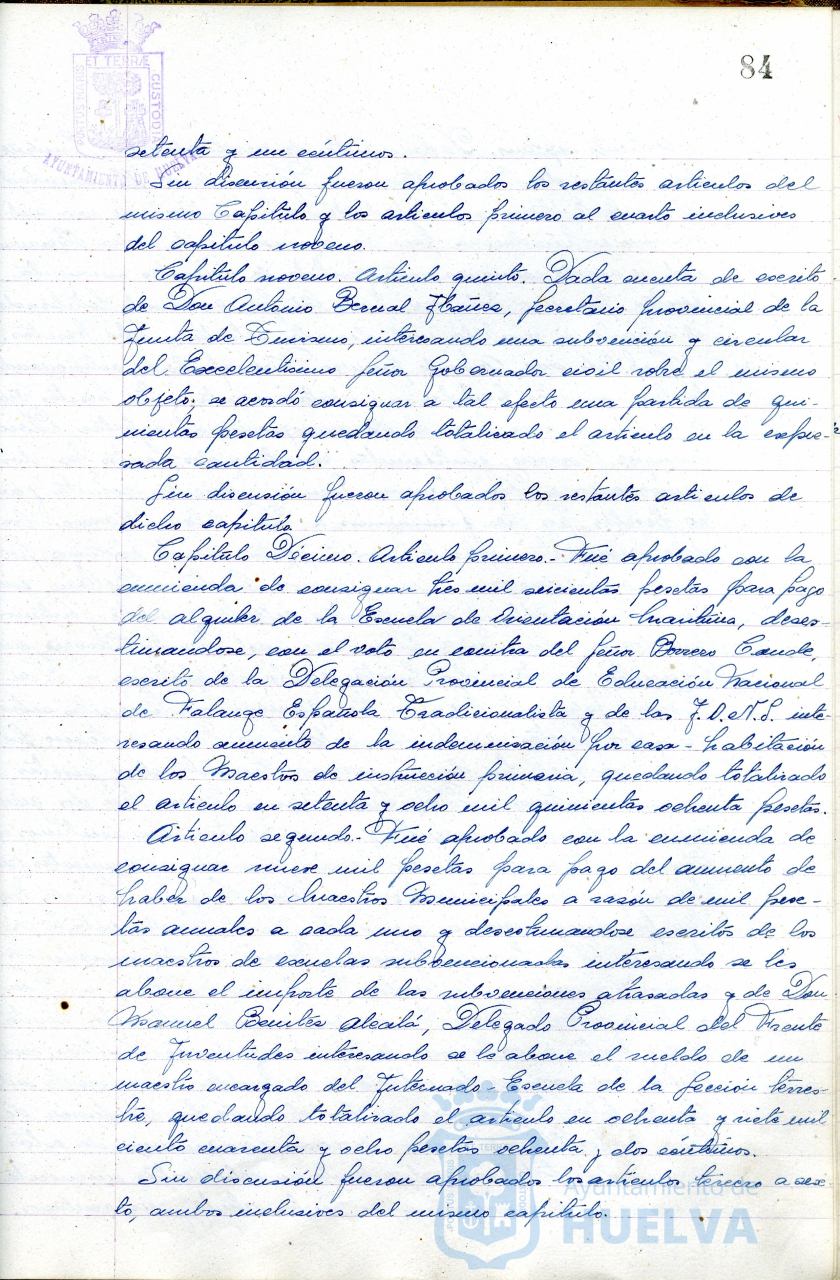 84
ET TERRÆ
PORTUS MARIS
CUSTODIA
AYUNTAMIENTO DE HUELVA
setenta y un céntimos.
Sin discusión fueron aprobados los restantes articulos del
mismo Capítulo y los articulos primero al cuarto inclusives
del capitulo noveno.
Capítulo noveno. Articulo quinto. Dada cuenta de escrito
de Don Antonio Bernal Ibañez, Secretario provincial de la
Junta de Turismo, interesando una subvención y circular
del Excelentísimo Señor Gobernador civil sobre el mismo
objeto; se acordó consignar a tal efecto una partida de qui-
nientas pesetas quedando totalizado el articulo en la expre-
sada cantidad.
Sin discusión fueron aprobados los restantes articulos de
dicho capítulo.
Capítulo Décimo. Articulo primero.- Fué aprobado con la
enmienda de consignar tres mil seicientas pesetas para pago
del alquiler de la Escuela de Orientación Marítima, deses-
timandose, con el voto en contra del Señor Borrero Conde,
escrito de la Delegación Provincial de Educación Nacional
de Falange Española Tradicionalista y de las J.O.N.S. inte-
resando aumento de la indemnización por casa-habitación
de los Maestros de instrucción primaria, quedando totalizado
el artículo en setenta y ocho mil quinientas ochenta pesetas.
Articulo segundo.- Fué aprobado con la enmienda de
consignar nueve mil pesetas para pago del aumento de
haber de los Maestros Municipales a razón de mil pese-
tas anuales a cada uno y desestimandose escritos de los
maestros de escuelas subvencionadas interesando se les
abone el importe de las subvenciones atrasadas y de Don
Manuel Benitez Alcalá, Delegado Provincial del Frente
de Juventudes interesando se le abone el sueldo de un
maestro encargado del Internado-Escuela de la Sección terres-
tre, quedando totalizado el artículo en ochenta y siete mil
ciento cuarenta y ocho pesetas ochenta y dos céntimos.
Sin discusión fueron aprobados los artículos tercero a sex-
to, ambos inclusives del mismo capítulo.
Ayuntamiento de
HUELVA